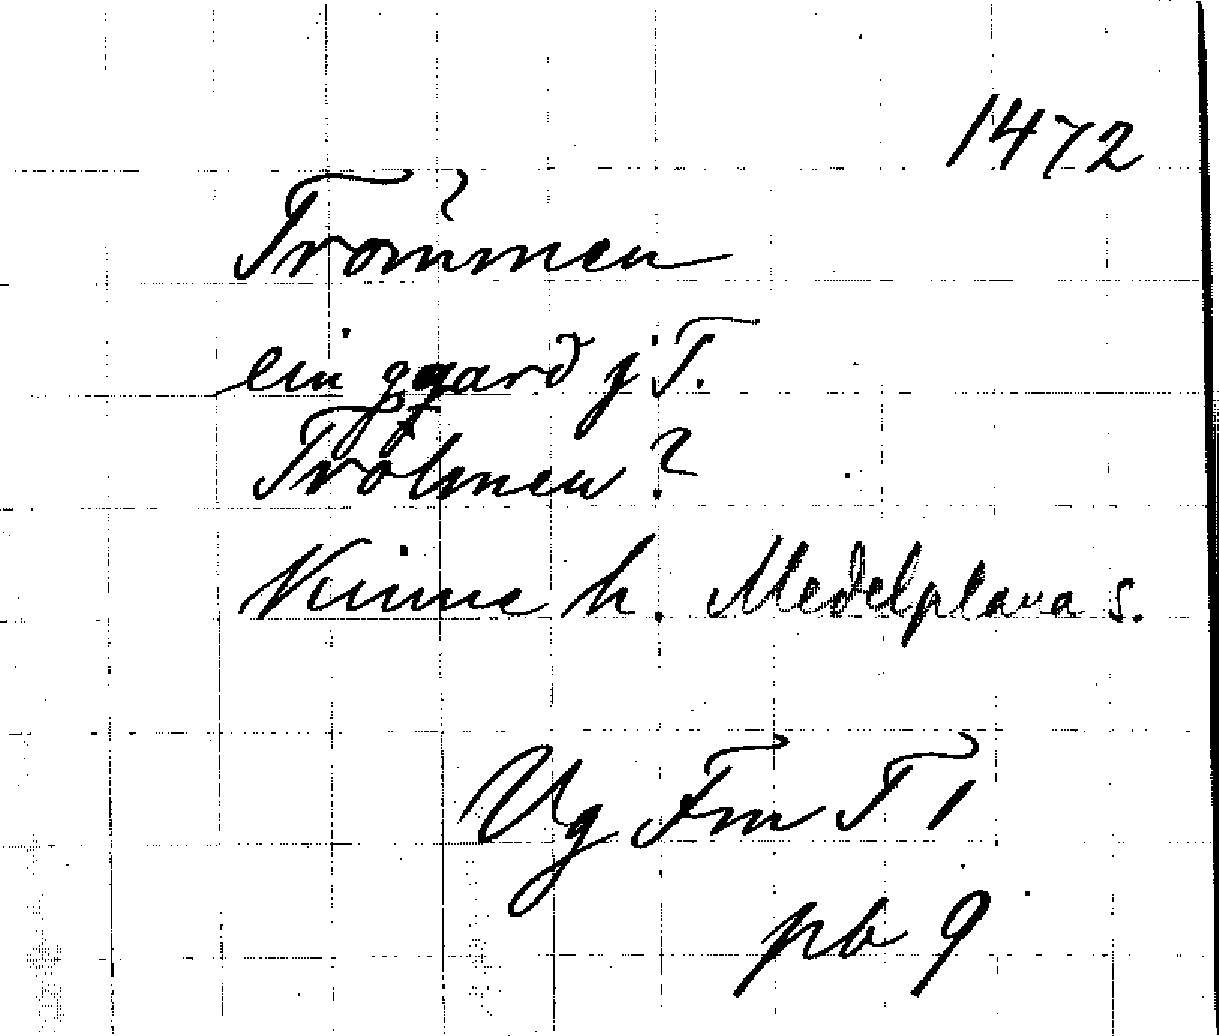 1472
Trommen
ein gard j T.
Trolmen?
Kinne h. Medelplana s.
Vg Fm T 1
pb 9